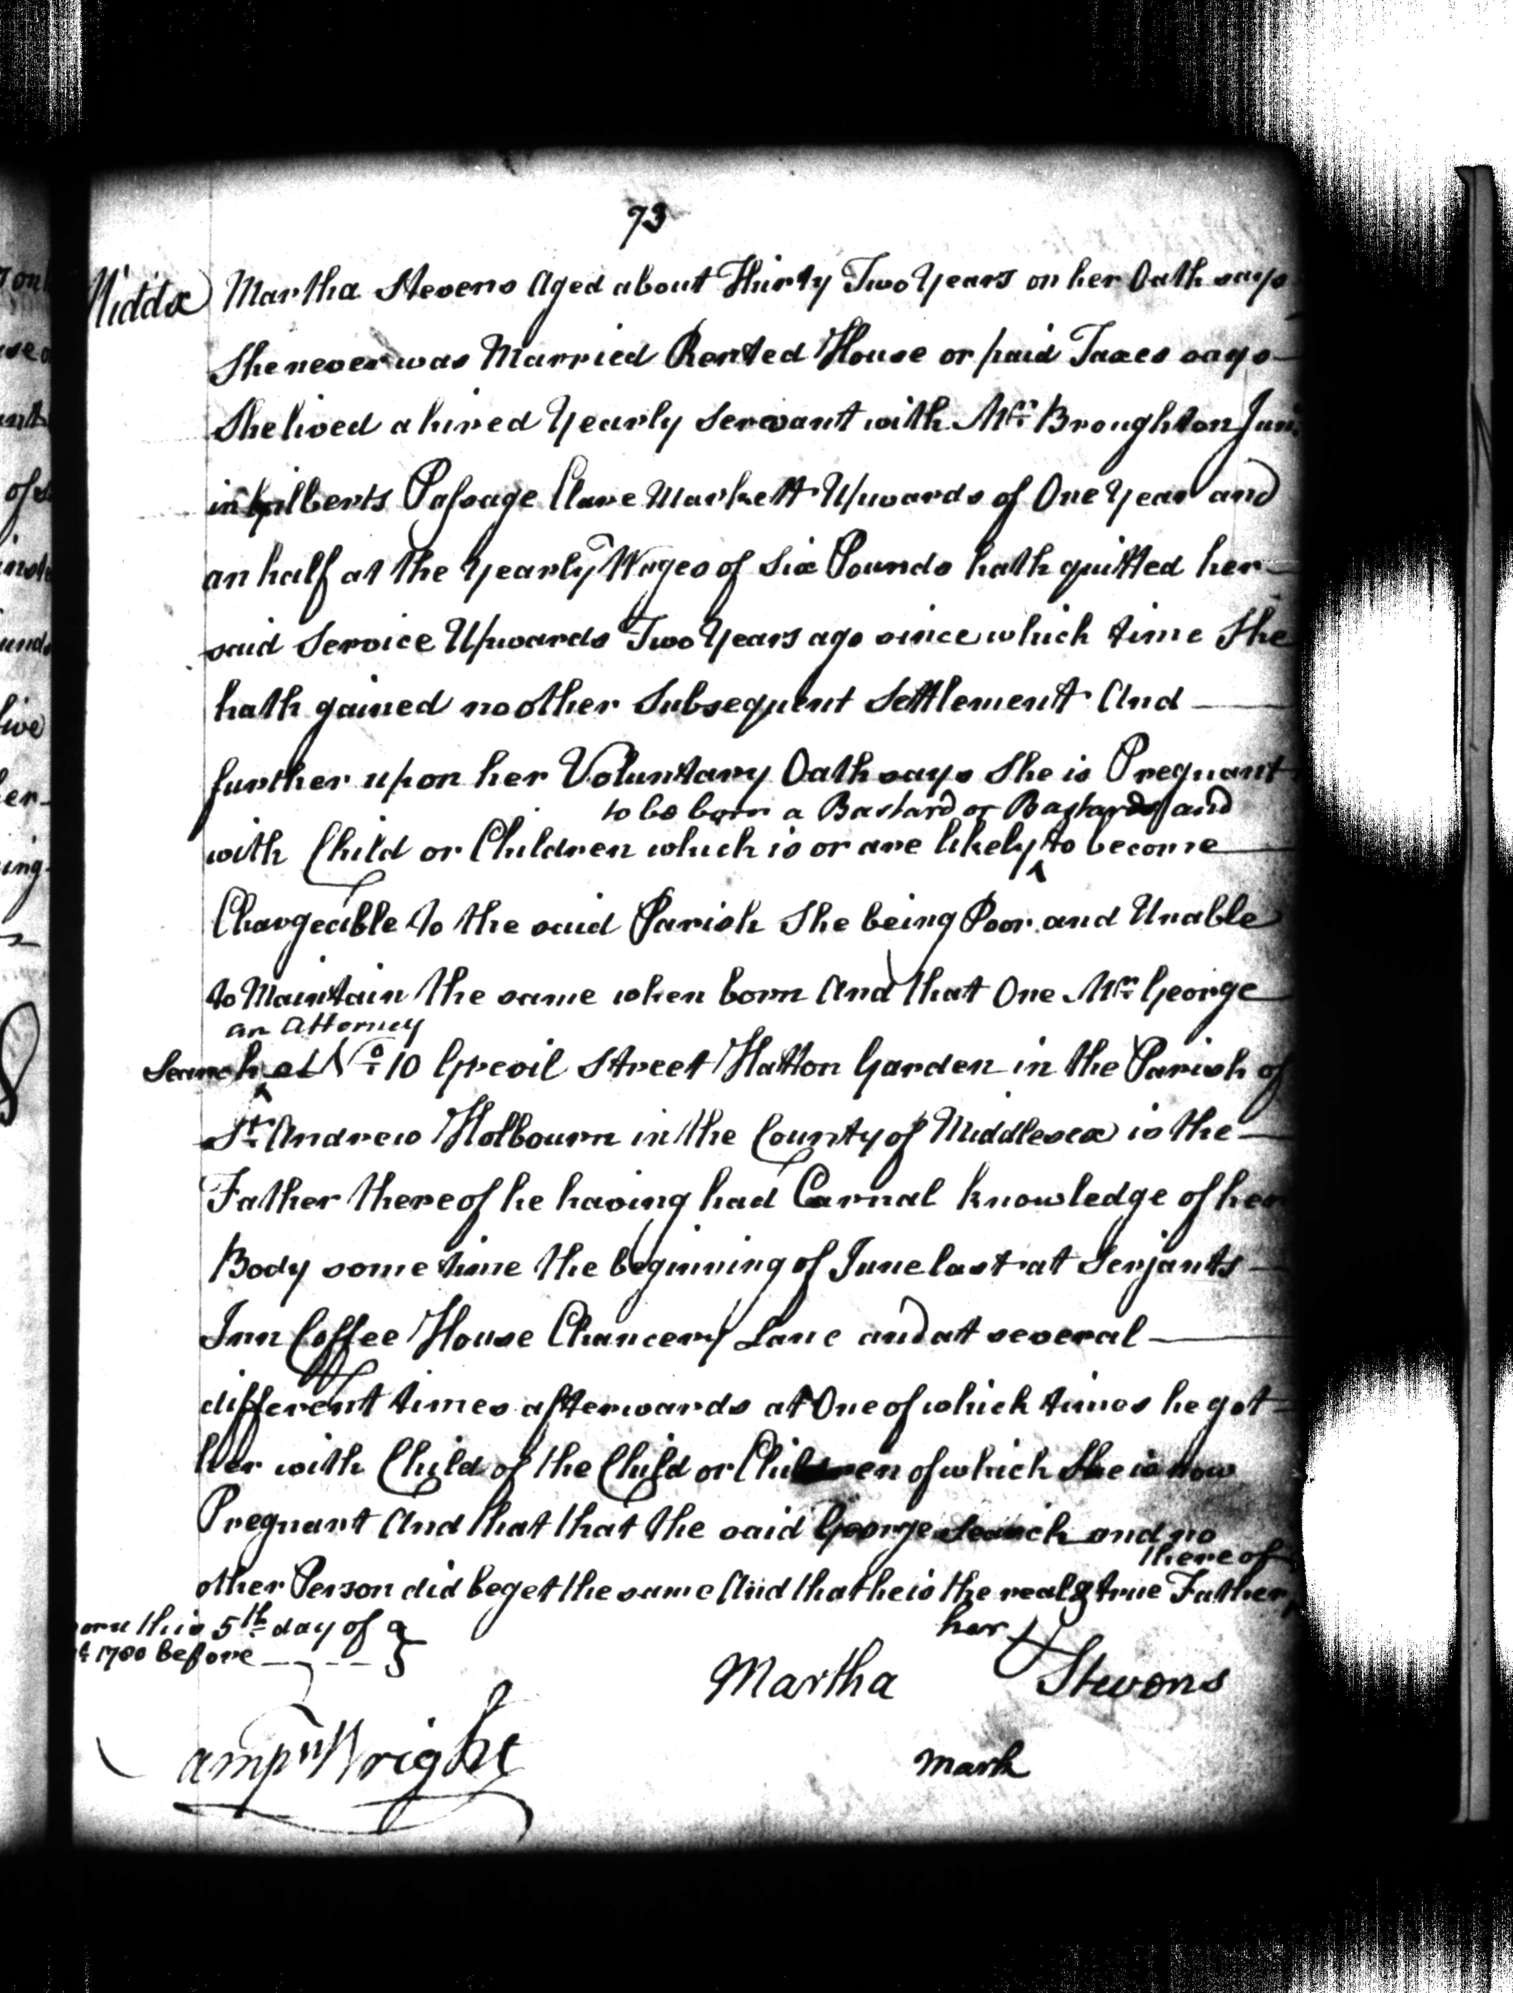 73
Middx Martha Stevens Aged about Thirty Two Years on her Oath says
She never was Married Rented House or paid Taxes says
She lived a hired Yearly Servant with Mr. Broughton Junr.
in Gilberts Passage Clare Markett Upwards of One Year and
an half at the Yearly Wages of Six Pounds hath quitted her
said Service Upwards Two Years ago since which time She
hath gained no other Subsequent Settlement And
further upon her Voluntary Oath says She is Pregnant
to be born a Bastard or Bastards and
with Child or Children which is or are likely ^ to become
Chargeable to the said Parish She being Poor and Unable
to Maintain the same when born And that One Mr. George
an Attorney
Search ^ at No. 10 Grevil Street Hatton Garden in the Parish of
St. Andrew Holbourn in the County of Middlesex is the
Father thereof he having had Carnal knowledge of her
Body some time the beginning of June last at Serjants
Inn Coffee House Chancery Lane and at several
different times afterwards at One of which times he got
her with Child of the Child or Children of which She is now
Pregnant And that that the said George Search and no
thereof
other Person did beget the same And that he is the real & true Father ^
orn this 5th day of
1780 before
her
Martha Stevons
mark
Sampn Wright